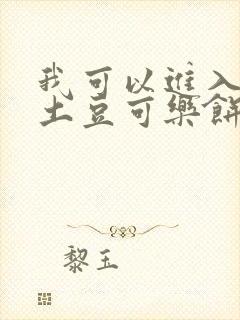 我可以進入
土豆可樂餅
黎玉